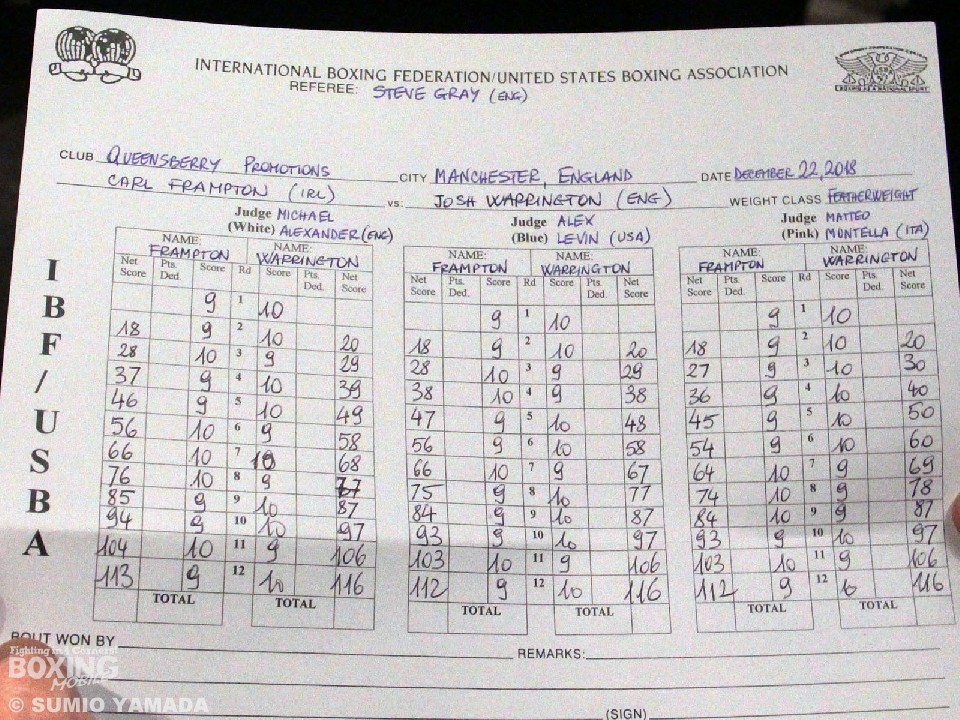 INTERNATIONAL BOXING FEDERATION/UNITED STATES BOXING ASSOCIATION
REFEREE: STEVE GRAY (ENG)
CLUB QUEENSBERRY PROMOTIONS CITY MANCHESTER, ENGLAND DATE DECEMBER 22, 2018
CARL FRAMPTON (IRL) vs: JOSH WARRINGTON (ENG) WEIGHT CLASS FEATHERWEIGHT
Judge MICHAEL Judge ALEX Judge MATTEO
(White) ALEXANDER (ENG) (Blue) LEVIN (USA) (Pink) MONTELLA (ITA)
NAME: NAME: NAME: NAME: NAME: NAME:
FRAMPTON WARRINGTON FRAMPTON WARRINGTON FRAMPTON WARRINGTON
Net Score Pts. Ded. Score Rd Score Pts. Ded. Net Score Net Score Pts. Ded. Score Rd Score Pts. Ded. Net Score Net Score Pts. Ded. Score Rd Score Pts. Ded. Net Score
9 1 10 9 1 10 9 1 10
18 9 2 10 20 18 9 2 10 20 18 9 2 10 20
28 10 3 9 29 28 10 3 9 29 27 9 3 10 30
37 9 4 10 39 38 10 4 9 38 36 9 4 10 40
46 9 5 10 49 47 9 5 10 48 45 9 5 10 50
56 10 6 9 58 56 9 6 10 58 54 9 6 10 60
66 10 7 10 68 66 10 7 9 67 64 10 7 9 69
76 10 8 9 77 75 9 8 10 77 74 10 8 9 78
85 9 9 10 87 84 9 9 10 87 84 10 9 9 87
94 9 10 10 97 93 9 10 10 97 93 9 10 10 97
104 10 11 9 106 103 10 11 9 106 103 10 11 9 106
113 9 12 10 116 112 9 12 10 116 112 9 12 10 116
TOTAL TOTAL TOTAL TOTAL TOTAL TOTAL
IBF/USBA
BOUT WON BY REMARKS:
(SIGN)
Fighting in 4 Corners!
BOXING
Mobile
© SUMIO YAMADA